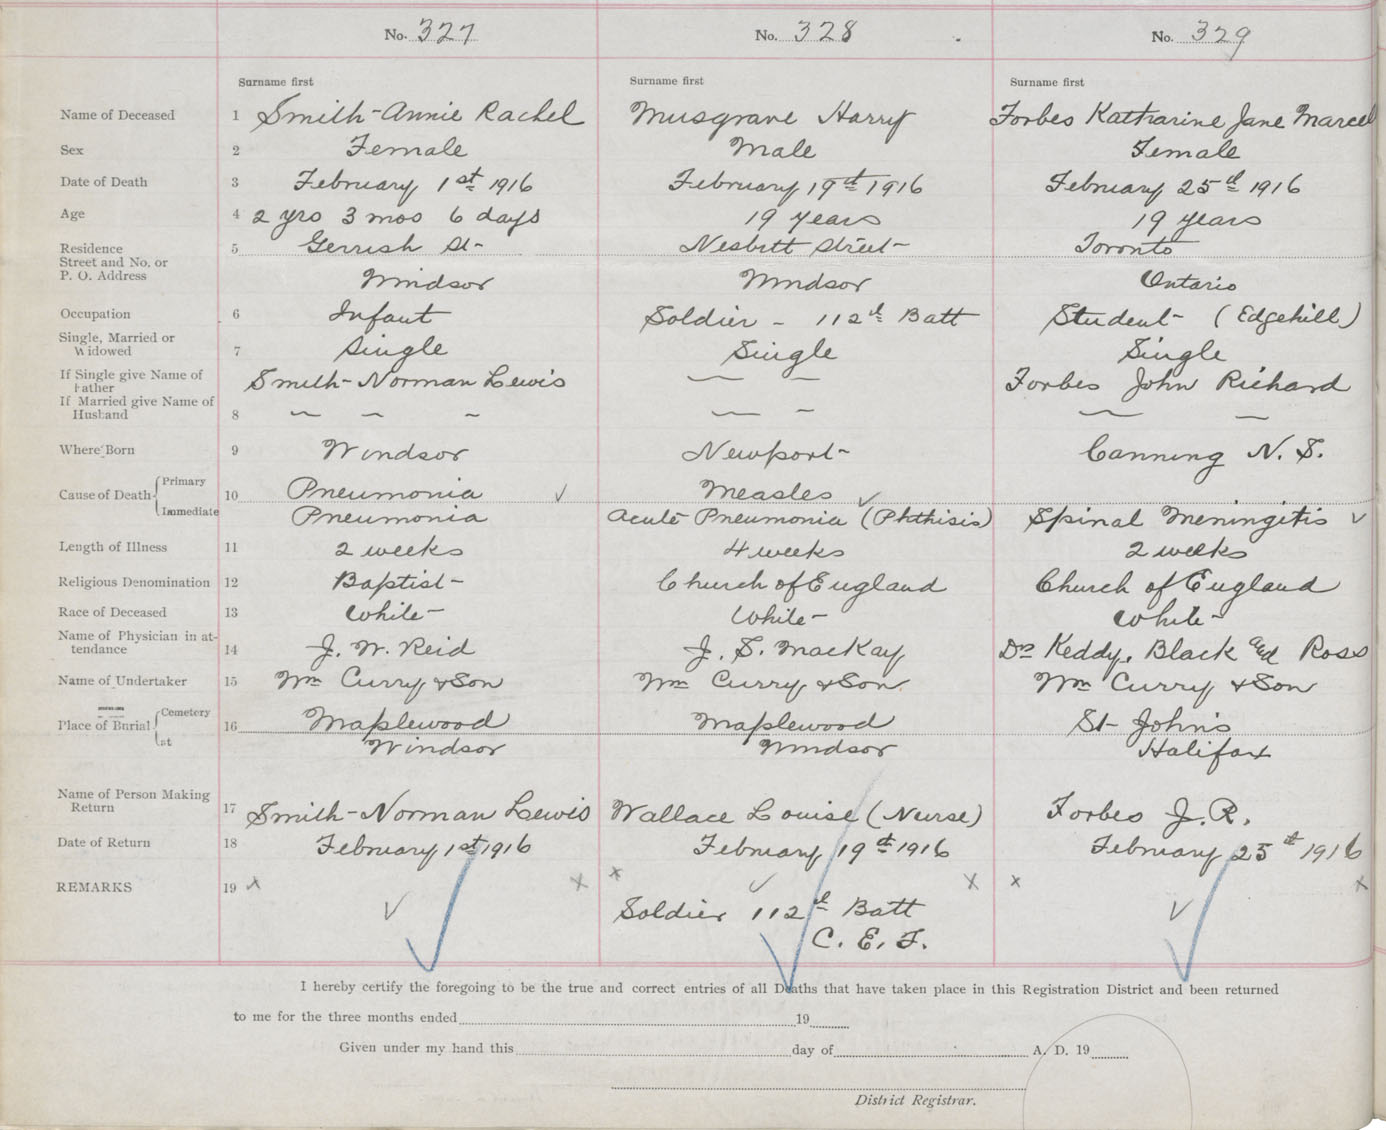 No. 327 No. 328 No. 329
Surname first Surname first Surname first
Name of Deceased 1 Smith-Annie Rachel Musgrave Harry Forbes Katharine Jane Marcel
Sex 2 Female Male Female
Date of Death 3 February 1st 1916 February 19th 1916 February 25th 1916
Age 4 2 yrs 3 mos 6 days 19 years 19 years
Residence 5 Gerrish St- Nesbitt Street- Toronto
Street and No. or
P. O. Address Windsor Windsor Ontario
Occupation 6 Infant Soldier - 112th Batt Student- (Edgehill)
Single, Married or
Widowed 7 Single Single Single
If Single give Name of
Father Smith-Norman Lewis — — Forbes John Richard
If Married give Name of
Husband 8 — — — — — — —
Where Born 9 Windsor Newport- Canning N. S.
Cause of Death Primary 10 Pneumonia ✓ Measles ✓
Immediate Pneumonia Acute Pneumonia (Phthisis) Spinal Meningitis ✓
Length of Illness 11 2 weeks 4 weeks 2 weeks
Religious Denomination 12 Baptist- Church of England Church of England
Race of Deceased 13 White- White- White-
Name of Physician in at-
tendance 14 J. W. Reid J. S. MacKay Drs Keddy, Black and Ross
Name of Undertaker 15 Wm Curry & Son Wm Curry & Son Wm Curry & Son
Place of Burial Cemetery 16 Maplewood Maplewood St- John's
at Windsor Windsor Halifax
Name of Person Making
Return 17 Smith-Norman Lewis Wallace Louise (Nurse) Forbes J. R.
Date of Return 18 February 1st 1916 February 19th 1916 February 25th 1916
REMARKS 19 x x x x x x
✓ Soldier 112th Batt ✓
C. E. F.
I hereby certify the foregoing to be the true and correct entries of all Deaths that have taken place in this Registration District and been returned
to me for the three months ended 19
Given under my hand this day of A. D. 19
District Registrar.